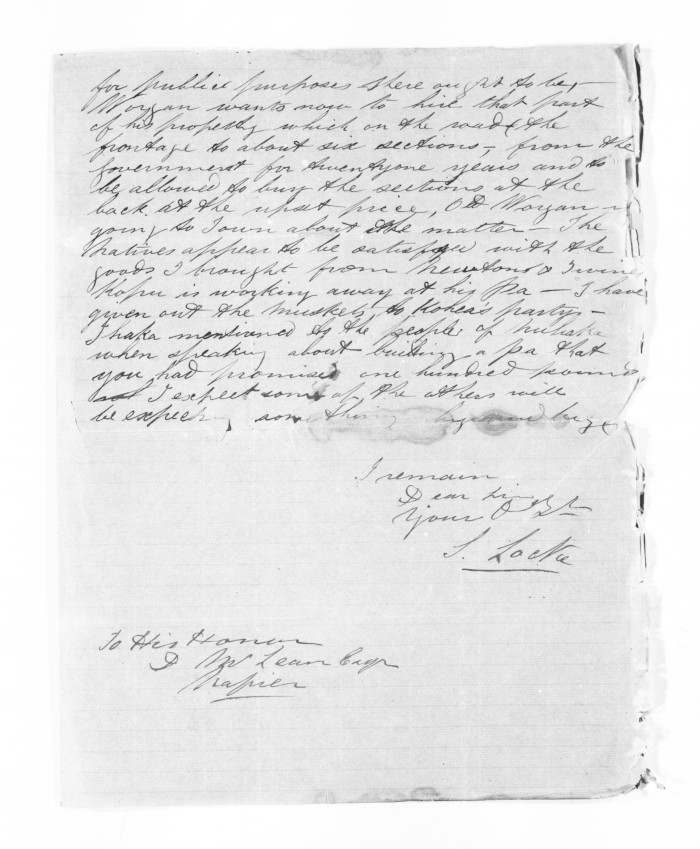 for public purposes there ought to be, -
Worgan wants now to hire that part
of his property which on the road & the
frontage to about six sections, - from the
Government for twentyone years and to
be allowed to buy the sections at the
back at the upset price, Old Worgan is
going to Town about the matter - The
Natives appear to be satisfyed with the
goods I brought from Newtons & Irvine
Kopu is working away at his Pa - I have
given out the muskets to Kohea's party -
Ihaka mentioned to the people of Nuhaka
when speaking about building a pa that
you had promised one hundred pounds
I expect some of the others will
be expecting something by and bye
I remain
Dear Sir
Your O St
S. Locke
To His Honor
D McLean Esqr
Napier